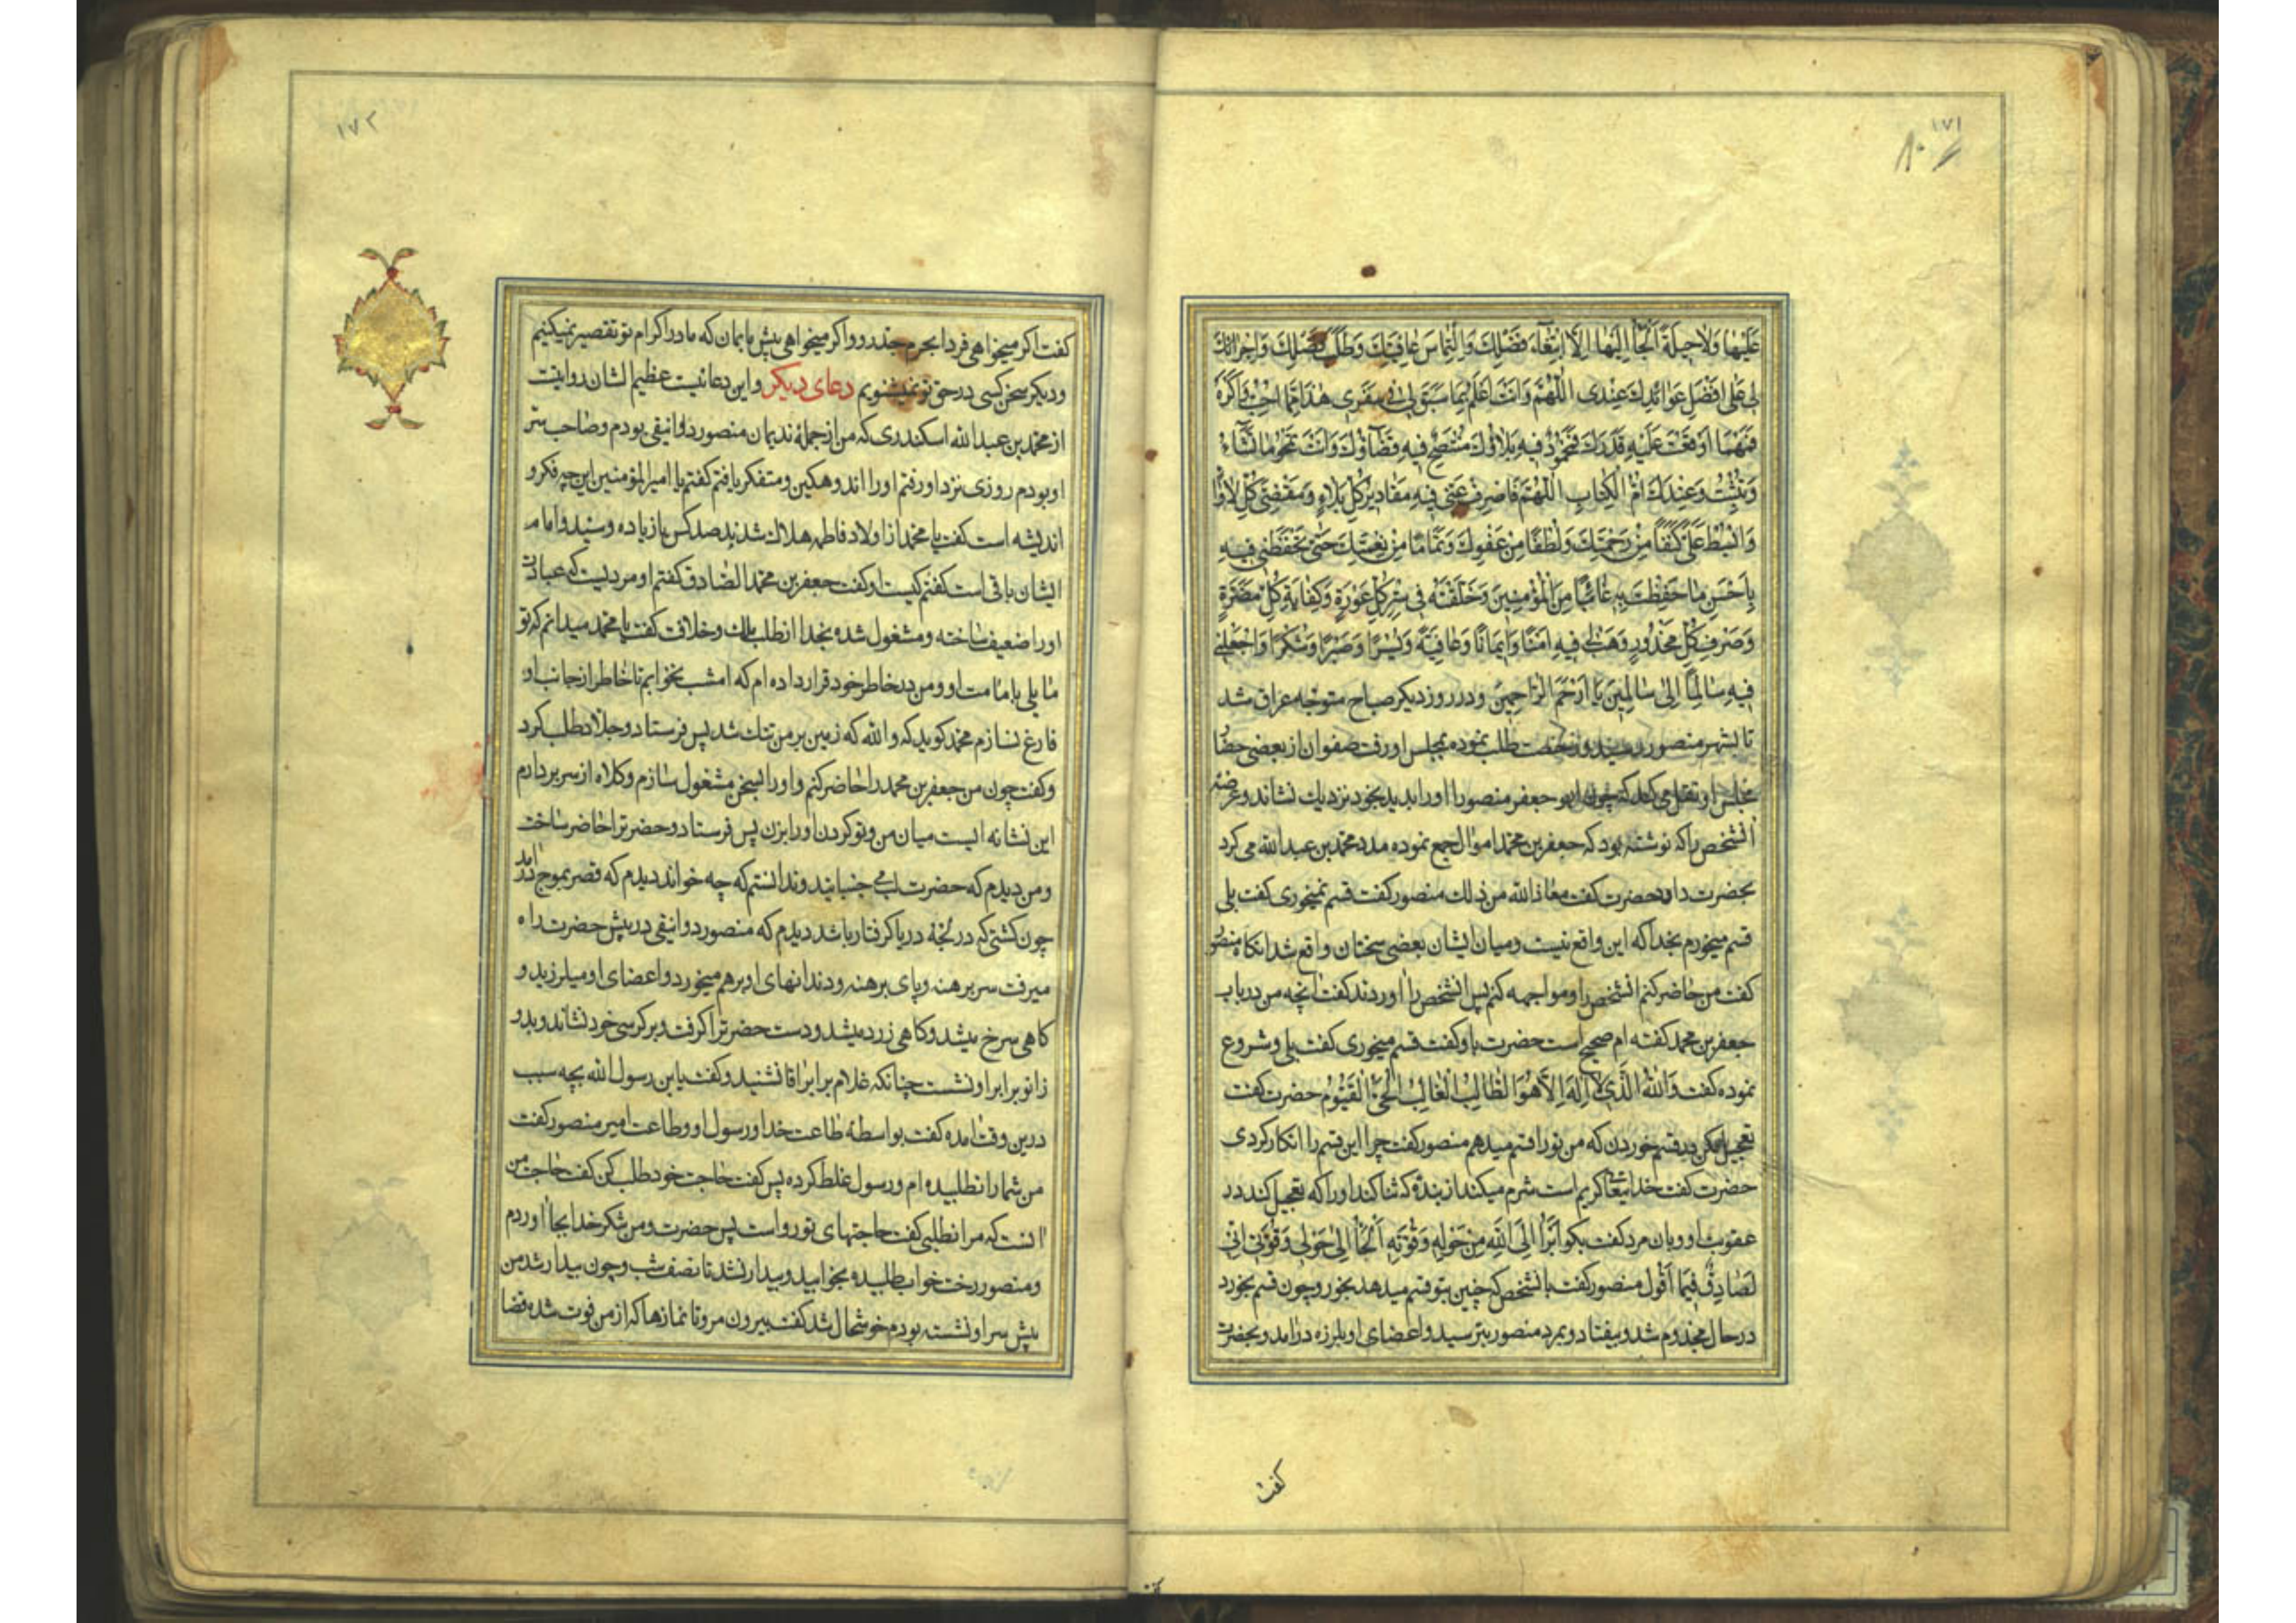 ١٧١
عَلَيْها وَلا حيلَةً اَلْجَأُ اِلَيْها اِلَّا ابْتِغآءَ فَضْلِكَ وَالْتِماسَ عافِيَتِكَ وَطَلَبَ فَضْلِكَ وَاِجْرائِكَ
لى عَلى اَفْضَلِ عَوائِدِكَ عِنْدى اَللّهُمَّ وَاَنْتَ اَعْلَمُ بِما سَبَقَ لى فى سَفَرى هذا مِمّا اُحِبُّ وَاَكْرَهُ
فَمَهْما اَوْقَعْتَ عَلَيْهِ قَدَرَكَ فَمَحْمُودٌ فيهِ بَلاؤُكَ مُتَّضِحٌ فيهِ قَضآؤُكَ وَاَنْتَ تَمْحُو ما تَشآءُ
وَتُثْبِتُ وَعِنْدَكَ اُمُّ الْكِتابِ اَللّهُمَّ فَاصْرِفْ عَنّى فيهِ مَقاديرَ كُلِّ بَلاءٍ وَمَقْضِىَّ كُلِّ لَاْوآءٍ
وَابْسُطْ عَلَىَّ كَنَفًا مِنْ رَحْمَتِكَ وَلُطْفًا مِنْ عَفْوِكَ وَتَمامًا مِنْ نِعْمَتِكَ حَتّى تَحْفَظَنى فيهِ
بِاَحْسَنِ ما حَفِظْتَ بِهِ غائِبًا مِنَ الْمُؤْمِنينَ وَخَلَقْتَهُ فى سِتْرِ كُلِّ عَوْرَةٍ وَكِفايَةِ كُلِّ مَضَرَّةٍ
وَصَرْفِ كُلِّ مَحْذُورٍ وَهَبْ لى فيهِ اَمْنًا وَايمانًا وَعافِيَةً وَيُسْرًا وَصَبْرًا وَشُكْرًا وَاجْعَلْنى
فيهِ سالِمًا اِلى سالِمينَ يا اَرْحَمَ الرّاحِمينَ ودر روز دیکر صباح متوجه عراق شد
تا بشهر منصور رسید و رخصت طلب نموده بمجلس او رفت صفوان از بعضی حضار
مجلس او نقل می کند که چون ابو جعفر منصور او را بدید بخود نزدیك نشاند و عرضه
آنشخص را که نوشته بود که جعفر بن محمد اموال جمع نموده مدد محمد بن عبدالله می کرد
بحضرت داد حضرت کفت معاذ الله من ذلك منصور کفت قسم نمیخوری کفت بلی
قسم میخورم بخدا که این واقع نیست ومیان ایشان بعضی سخنان واقع شد انکاه منصور
کفت من حاضر کنم آنشخص را و مواجهه کنم پس آنشخص را آوردند کفت آنچه من در باب
جعفر بن محمد کفته ام صحیح است حضرت باو کفت قسم میخوری کفت بلی و شروع
نموده کفت وَاللهِ الَّذى لا اِلهَ اِلاّ هُوَ الطّالِبُ الْغالِبُ الْحَىُّ الْقَيُّومُ حضرت کفت
تعجیل مکن در قسم خوردن که من تو را قسم میدهم منصور کفت چرا این قسم را انکار کردی
حضرت کفت خدایتعالی کریم است شرم میکند از بنده که ثنا کند او را که تعجیل کند در
عقوبت او و بان مرد کفت بکو اَبْرَأُ اِلَى اللهِ مِنْ حَوْلِهِ وَقُوَّتِهِ اَلْجَأُ اِلى حَوْلى وَقُوَّتى اِنّى
لَصادِقٌ فيما اَقُولُ منصور کفت بآنشخص که چنین بتو قسم میدهد بخور و چون قسم بخورد
درحال مجذوم شد و بیفتاد و بمرد منصور بترسید و اعضای او بلرزه درآمد و بحضرت
کفت
١٧٢
کفت اکر میخواهی فردا بحرم جد رو و اکر میخواهی پیش ما بمان که ما در اکرام تو تقصیر نمیکنیم
ودیکر سخن کسی در حق تو نمیشنویم دعای دیکر و این دعائیست عظیم الشان روایتست
از محمد بن عبدالله اسکندری که من از جملهٔ ندیمان منصور دوانیقی بودم و صاحب سر
او بودم روزی نزد او رفتم او را اندوهکین و متفکر یافتم کفتم یا امیرالمؤمنین این چه فکر و
اندیشه است کفت یا محمد از اولاد فاطمه هلاك شدند صد کس یا زیاده و سید و امام
ایشان باقی است کفتم کیست او کفت جعفر بن محمد الصادق کفتم او مردیست که عبادت
او را ضعیف ساخته و مشغول شده بخدا از طلب ملك و خلافت کفت یا محمد میدانم که تو
مایلی بامامت او و من در خاطر خود قرار داده ام که امشب نخوابم تا خاطر از جانب او
فارغ نسازم محمد کوید که والله که زمین بر من تنك شد پس فرستاد و جلاد طلب کرد
وکفت چون من جعفر بن محمد را حاضر کنم و او را بسخن مشغول سازم و کلاه از سر بردارم
این نشانه ایست میان من و تو کردن او را بزن پس فرستاد و حضرترا حاضر ساخت
و من دیدم که حضرت لب می جنبانید و ندانستم که چه خواند دیدم که قصر بموج درآمد
چون کشتی که در لجّهٔ دریا کرفتار باشد دیدم که منصور دوانیقی در پیش حضرت راه
میرفت سر برهنه و پای برهنه و دندانهای او برهم میخورد و اعضای او میلرزید و
کاهی سرخ میشد و کاهی زرد میشد و دست حضرترا کرفت و بر کرسی خود نشاند و بدو
زانو برابر او نشست چنانکه غلام برابر آقا نشیند و کفت یا بن رسول الله بچه سبب
درین وقت آمده کفت بواسطهٔ طاعت خدا و رسول او و طاعت امیر منصور کفت
من شما را نطلبیده ام و رسول غلط کرده پس کفت حاجت خود طلب کن کفت حاجت من
آنست که مرا نطلبی کفت حاجتهای تو رواست پس حضرت و من شکر خدا بجا آوردم
و منصور رخت خواب طلبیده بخوابید و بیدار نشد تا نصف شب و چون بیدار شد من
پیش سر او نشسته بودم خوشحال شد کفت بیرون مرو تا نمازها که از من فوت شده قضا